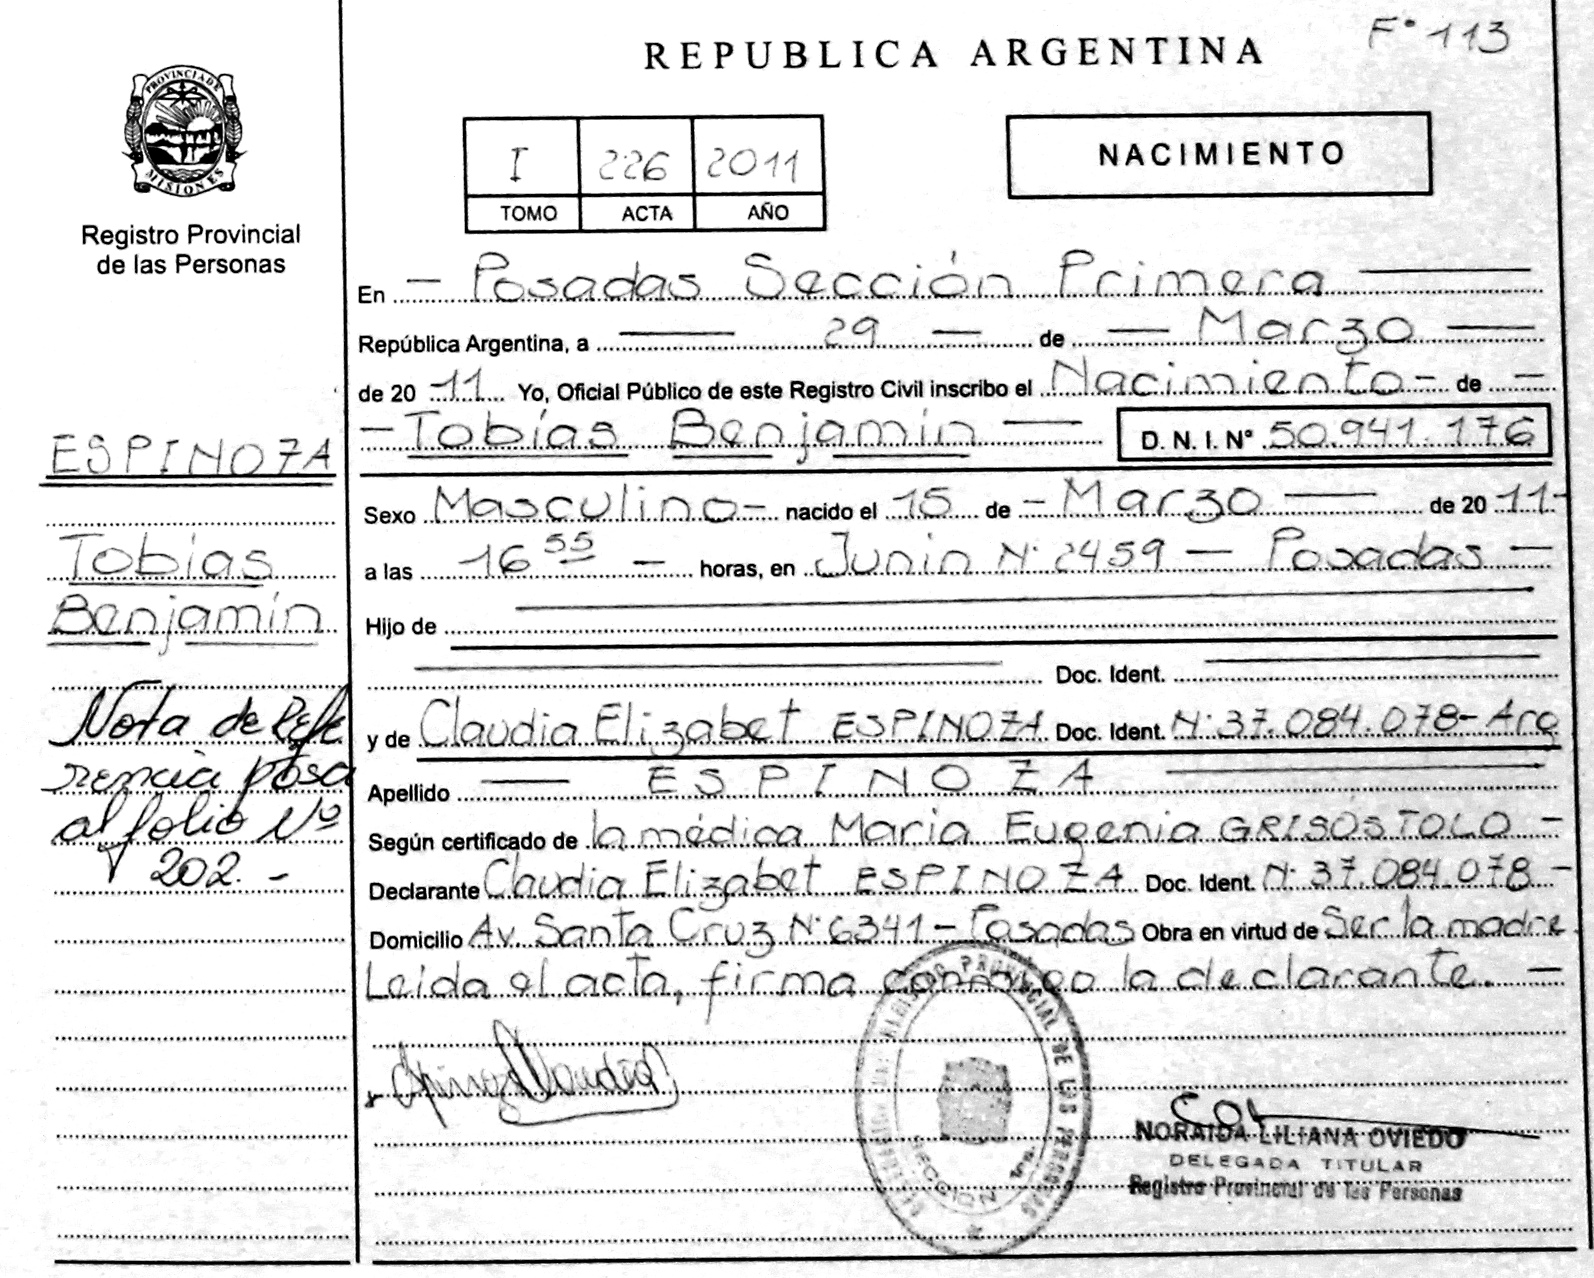 F° 113
REPUBLICA ARGENTINA
PROVINCIA DE
MISIONES
Registro Provincial
de las Personas
I 226 2011
TOMO ACTA AÑO
NACIMIENTO
En — Posadas Sección Primera —
República Argentina, a — 29 — de — Marzo —
de 20 11 Yo, Oficial Público de este Registro Civil inscribo el Nacimiento - de —
— Tobías Benjamín — D. N. I. N° 50.941.176
ESPINOZA
Tobías
Benjamín
Nota de Refe
rencia pasa
al folio Nº
202. -
Sexo Masculino - nacido el 15 de - Marzo — de 20 11 -
a las 16 55 — horas, en Junin N° 2459 — Posadas —
Hijo de —
— Doc. Ident. —
y de Claudia Elizabet ESPINOZA Doc. Ident. N° 37.084.078 - Arg
Apellido — ESPINOZA —
Según certificado de la médica Maria Eugenia GRISÓSTOLO -
Declarante Claudia Elizabet ESPINOZA Doc. Ident. N° 37.084.078 -
Domicilio Av. Santa Cruz N° 6341 - Posadas Obra en virtud de Ser la madre.
Leída el acta, firma conmigo la declarante. —
Espinoza Claudia
REGISTRO PROVINCIAL DE LAS PERSONAS
SECCION 1ra.
NORAIDA LILIANA OVIEDO
DELEGADA TITULAR
Registro Provincial de las Personas